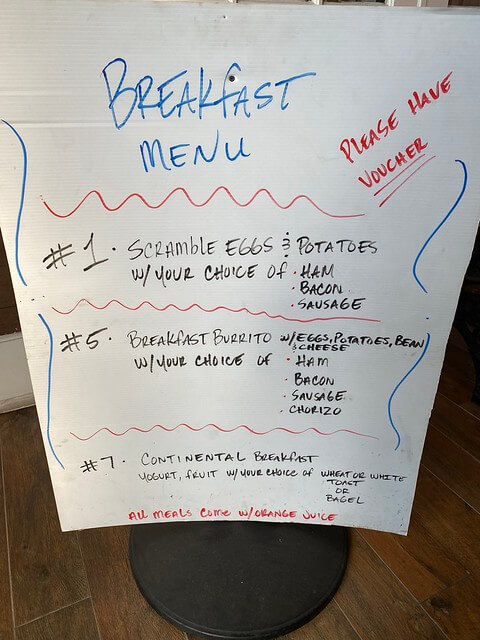 BREAKFAST
MENU
PLEASE HAVE
VOUCHER
#1. SCRAMBLE EGGS & POTATOES
W/ YOUR CHOICE OF · HAM
· BACON
· SAUSAGE
#5. BREAKFAST BURRITO W/ EGGS, POTATOES, BEAN
& CHEESE
W/ YOUR CHOICE OF · HAM
· BACON
· SAUSAGE
· CHORIZO
#7. CONTINENTAL BREAKFAST
YOGURT, FRUIT W/ YOUR CHOICE OF WHEAT OR WHITE
TOAST
OR
BAGEL
ALL MEALS COME W/ ORANGE JUICE